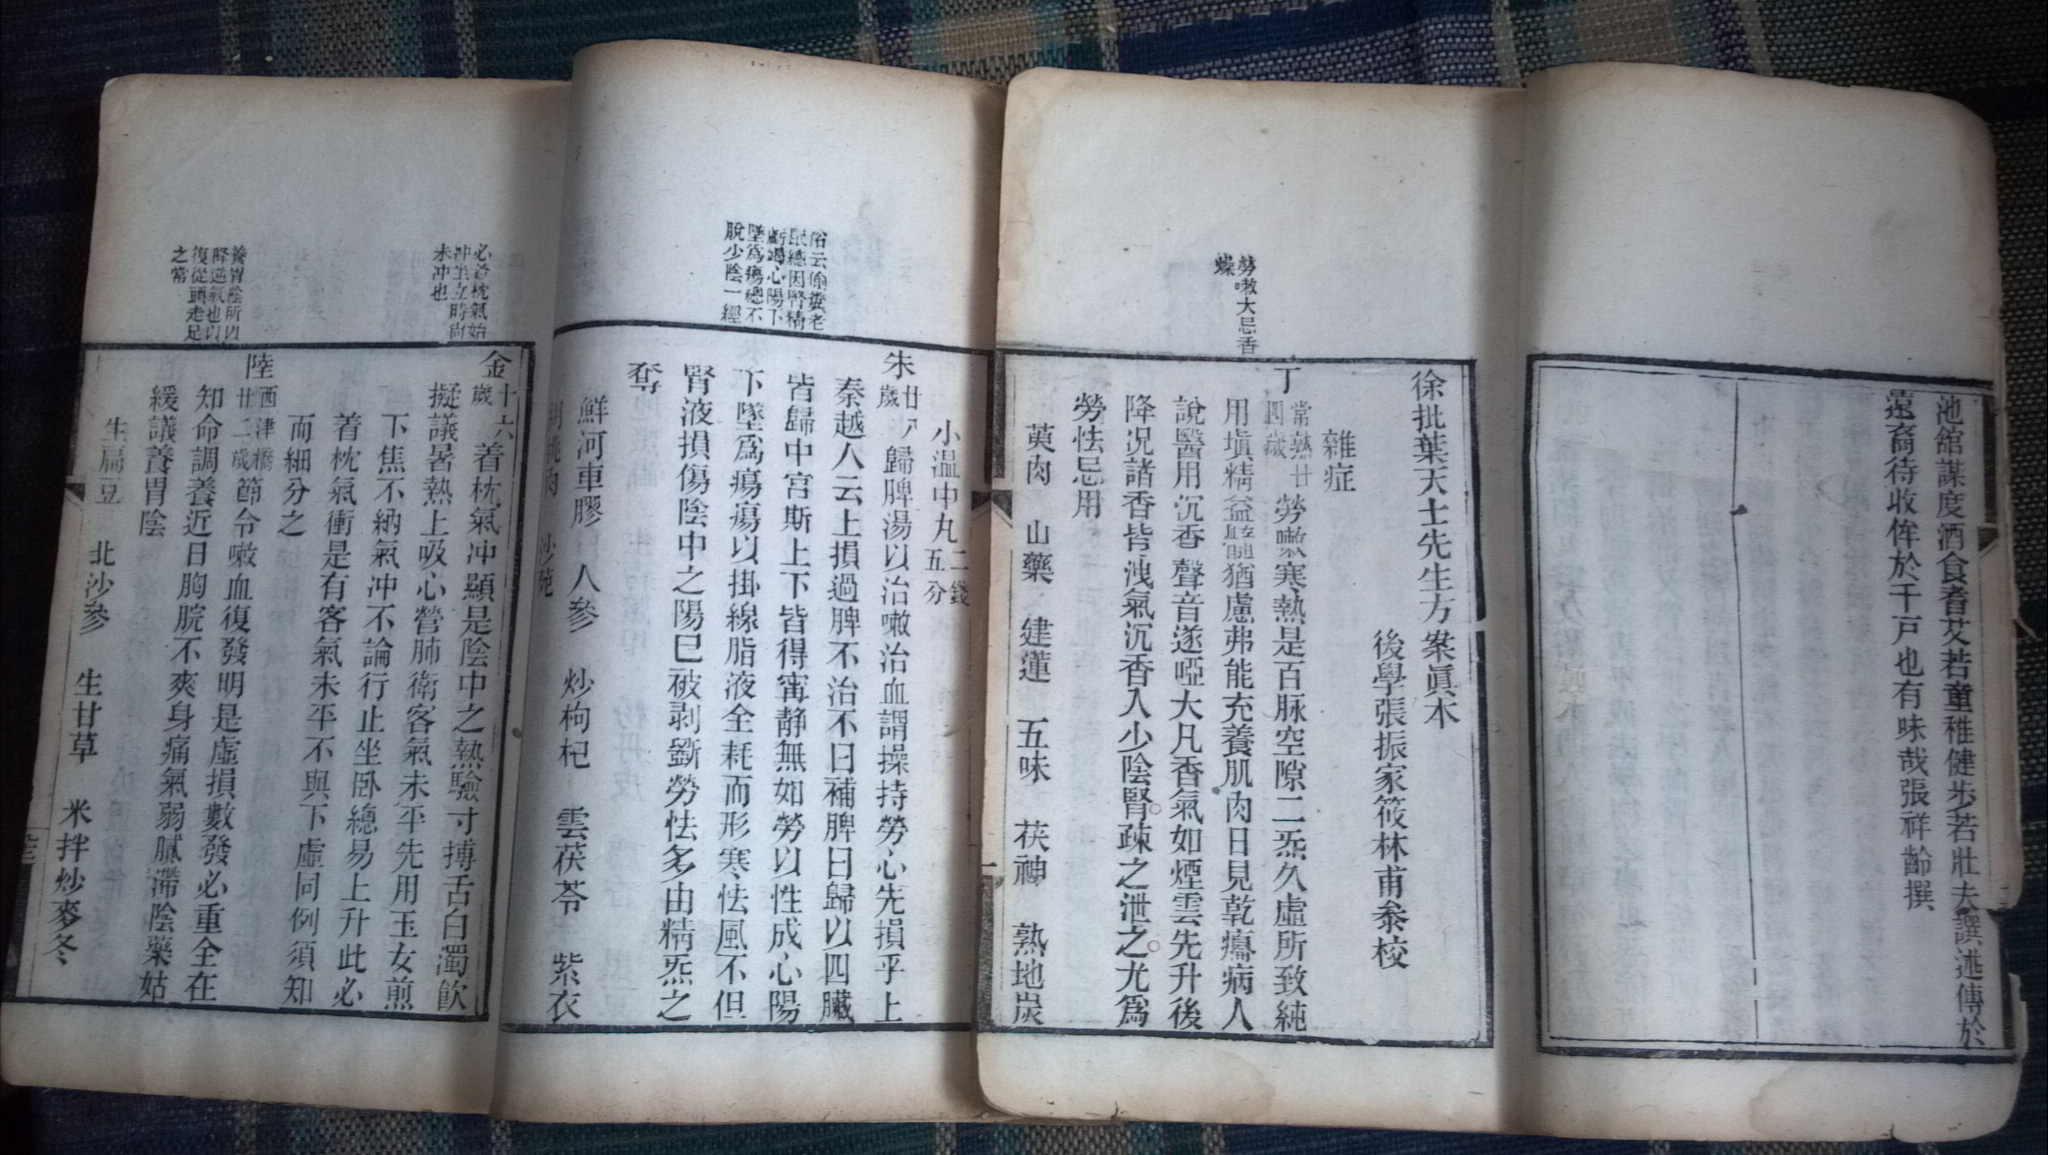 池館謀度酒食耆艾若童稚健步若壯夫譔述傳於
遠裔待收侔於千戸也有味哉張祥齡撰
徐批葉天士先生方案眞本
後學張振家筱林甫叅校
雜症
勞嗽大忌香
燥
丁
常熟廿
四歲
勞嗽寒熱是百脉空隙二炁久虛所致純
用塡精益髓猶慮弗能充養肌肉日見乾癟病人
說醫用沉香聲音遂啞大凡香氣如煙雲先升後
降况諸香皆洩氣沉香入少陰腎疎之泄之尤爲
勞怯忌用
萸肉 山藥 建蓮 五味 茯神 熟地炭
小温中丸
二錢
五分
俗云偷糞老
鼠總因腎精
虧渴心陽下
墜爲瘍總不
脫少陰一經
朱
廿八
歲
歸脾湯以治嗽治血謂操持勞心先損乎上
秦越人云上損過脾不治不曰補脾曰歸以四臟
皆歸中宮斯上下皆得寗静無如勞以性成心陽
下墜爲瘍瘍以掛線脂液全耗而形寒怯風不但
腎液損傷陰中之陽已破剥斵勞怯多由精炁之
奪
鮮河車膠 人參 炒枸杞 雲茯苓 紫衣
胡桃肉 沙苑
必着枕氣始
冲坐立時尚
未冲也
金
十六
歲
着枕氣冲顯是陰中之熱驗寸搏舌白濁飮
擬議暑熱上吸心營肺衛客氣未平先用玉女煎
下焦不納氣冲不論行止坐卧總易上升此必
着枕氣衝是有客氣未平不與下虛同例須知
而細分之
養胃陰所以
降逆氣也以
復從頭走足
之常
陸
西津橋
廿二歲
節令嗽血復發明是虛損數發必重全在
知命調養近日胸脘不爽身痛氣弱膩滯陰藥姑
緩議養胃陰
生扁豆 北沙參 生甘草 米拌炒麥冬